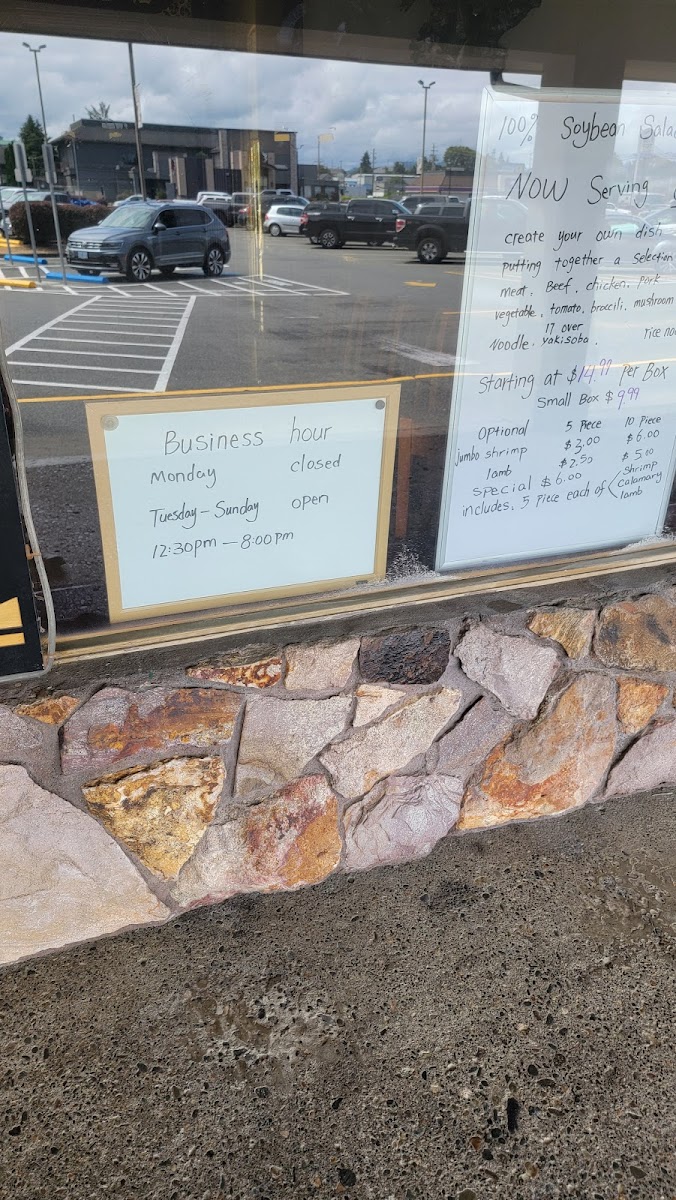 Business hour
Monday closed
Tuesday - Sunday open
12:30pm - 8:00pm
100% Soybean Sala
NOW Serving
create your own dish
putting together a selection
meat. Beef. chicken. pork
vegetable. tomato. broccili. mushroom
Noodle. 17 over yakisoba. rice
Starting at $14.99 per Box
Small Box $9.99
Optional 5 piece 10 piece
jumbo shrimp $3.00 $6.00
lamb $2.50 $5.00
special $6.00
includes. 5 piece each of shrimp calamary lamb